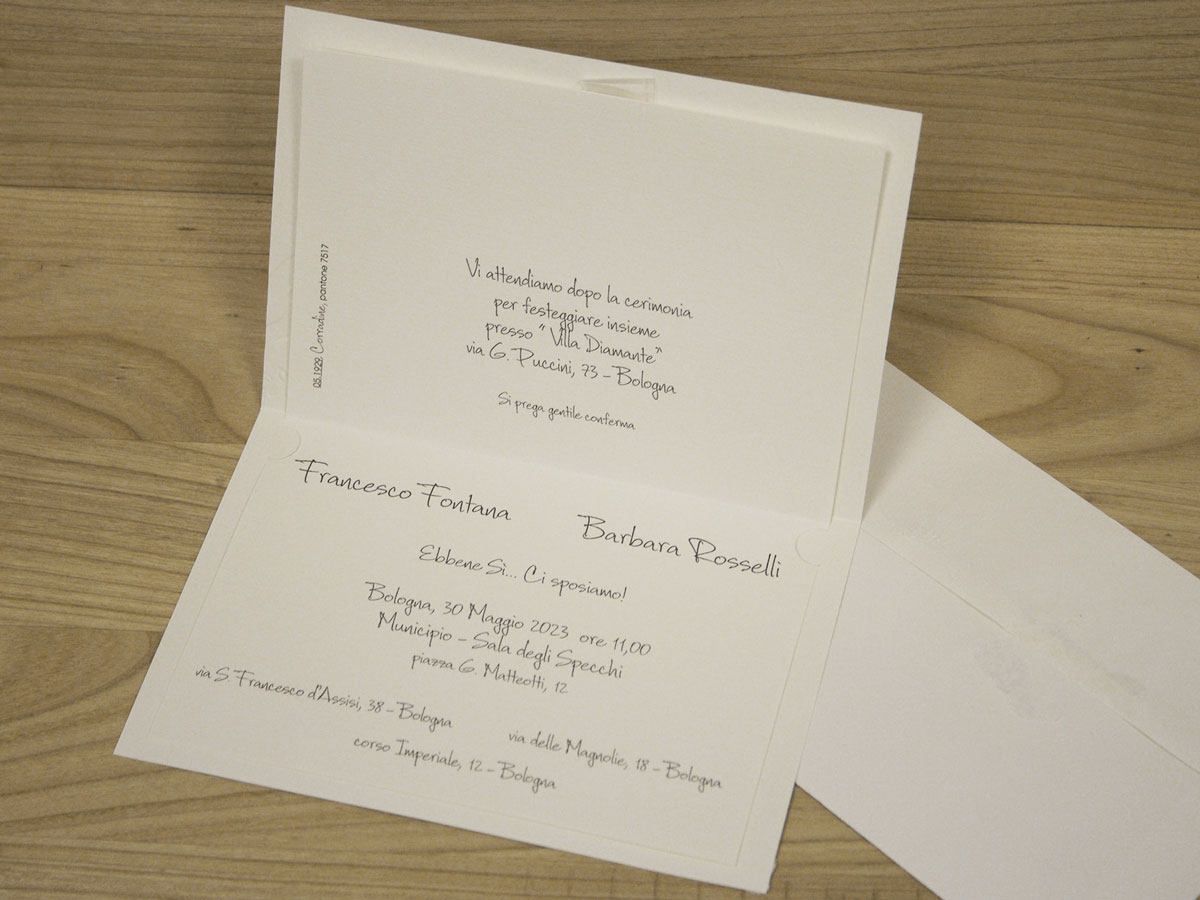 Vi attendiamo dopo la cerimonia
per festeggiare insieme
presso " Villa Diamante"
via G. Puccini, 73 - Bologna
Si prega gentile conferma
05.1929, Corradine, pantone 7517
Francesco Fontana Barbara Rosselli
Ebbene Sì... Ci sposiamo!
Bologna, 30 Maggio 2023 ore 11,00
Municipio - Sala degli Specchi
piazza G. Matteotti, 12
via S. Francesco d'Assisi, 38 - Bologna via delle Magnolie, 18 - Bologna
corso Imperiale, 12 - Bologna